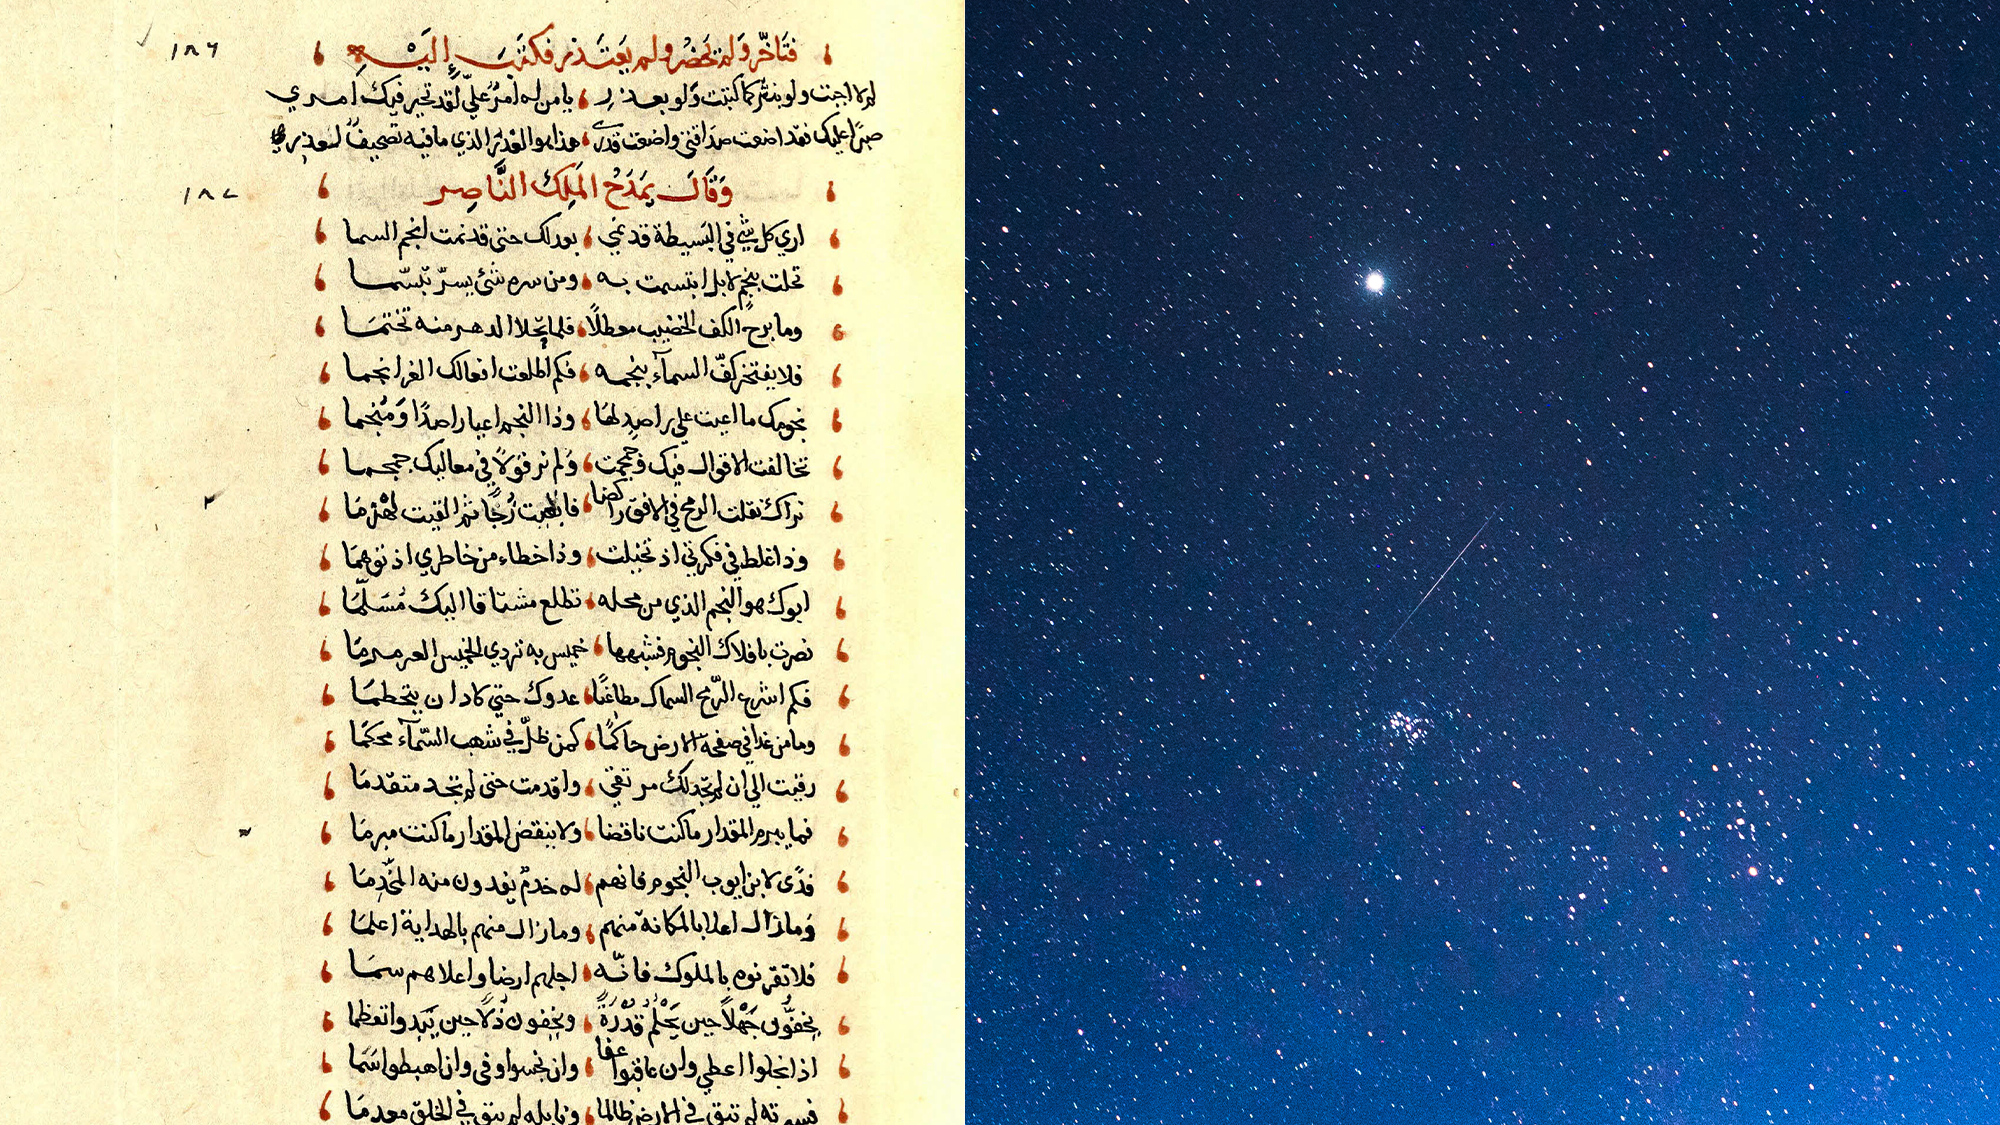 فتأخّر ولم يحضر ولم يعتذر فكتبَ إليه
١٨٦
لم لا اجبت ولو بنثر كما كتبت ولو بعذر يا من له أمرٌ عليّ لقد تحير فيك امري
صبرًا عليك فقد اضعت صداقتي واضعت قدري هذا هو الغدر الذي ما فيه تصحيفٌ لعذر
وَقَالَ يَمدَحُ المَلِكَ النَّاصِر
١٨٧
اري كل شي في البسيطة قد نمي بعدلك حتى قد نمت انجم السما
تحلت بنجمٍ لا بل ابتسمت به ومن سره شئ يسرّ تبسّما
وما برح الكف الخضيب معطلًا فلما تحلا الدهر منه تختمَا
فلا يفتخر كفّ السمآء بنجمه فكم اطلعت افعالك الغر انجما
نجومك ما اعيت علي راصدٍ لهَا وذا النجم اعيا راصدًا وَمُنجما
تخالفت الاقوال فيك وجمجمت ولم نر قولًا في معاليك جمجما
نراك نقلت الرمح في الافق راكضا فابقيت زُجًا ثم القيت لهذمَا
وذا غلط في فكرتي اذ تخيلت وذا خطاء من خاطري اذ توهما
ابوك هو النجم الذي من محله تطلع مشتاقا اليك مُسَلّمَا
نصرت بافلاك النجوم فشبهها خميس به تردي الخميس العرمرمَا
فكم اشرع الرّمح السماك مطاعنًا عدوك حتي كاد ان يتحطمَا
وما من غدا في صفحة الارض حاكمًا كمن ظلّ في شهب السّمآء محكمَا
رقيت الي ان لم تجد لك مرتقي واقدمت حتى لم تجد متقدمَا
فما يبرم المقدار ما كنت ناقضا ولا ينقض المقدار ما كنت مبرمَا
فدًى لابن ايوب النجوم فانهم له خدمٌ يفدون منه المخّدمَا
وَما زال اعلا بالمكانة منهم وما زال منهم بالهداية اعلمَا
فلا تقرنوه بالملوك فانّه اجلهم ارضا واعلاهم سمَا
يخفّون جَهْلًا حين يَحْلُمُ قُدْرَةً ويخفون ذُلًا حين يَبدوا تعظما
اذا بخلوا اعطي وان عاقبوا عفا وان بخسوا وفى وان هبطوا سَمَا
فسيرته لم تبق في الارض ظالما ونايله لم يبق في الخلق معدمَا